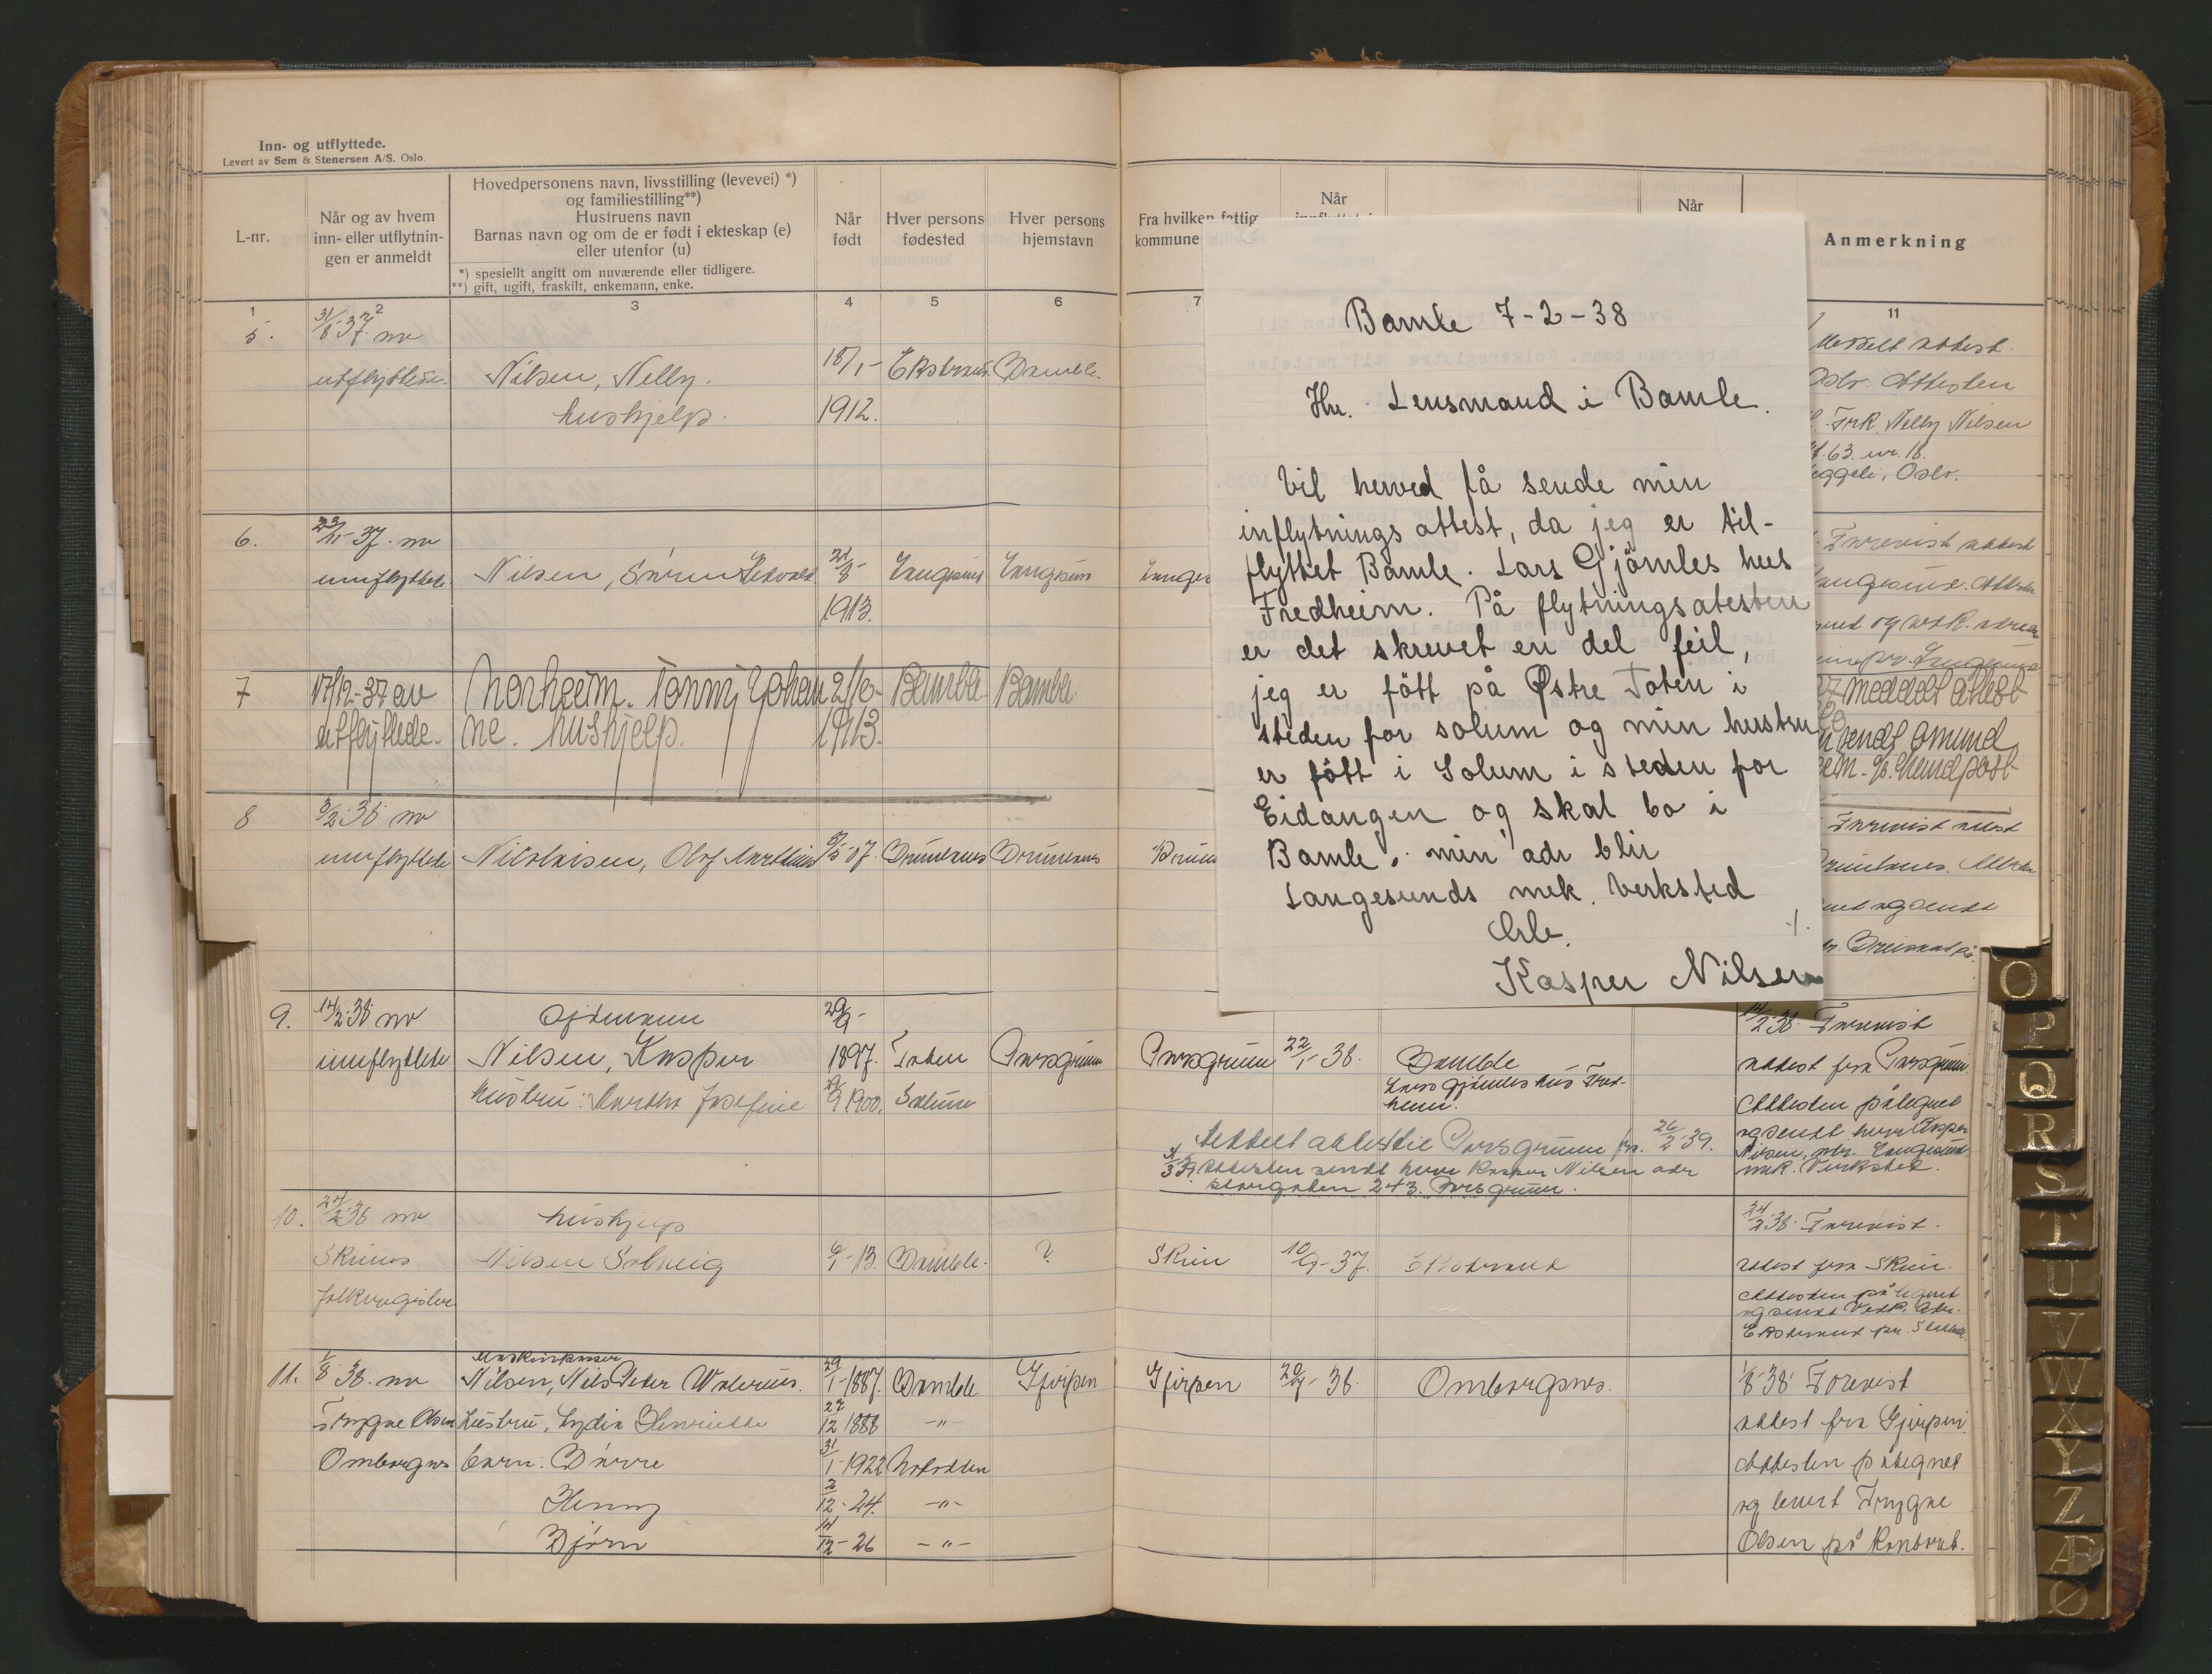 Inn- og utflyttede.
Levert av Sem & Stenersen A/S. Oslo.
L-nr.
Når og av hvem
inn- eller utflytnin-
gen er anmeldt
Hovedpersonens navn, livsstilling (levevei) *)
og familiestilling**)
Hustruens navn
Barnas navn og om de er født i ekteskap (e)
eller utenfor (u)
*) spesiellt angitt om nuværende eller tidligere.
**) gift, ugift, fraskilt, enkemann, enke.
Når
født
Hver persons
fødested
Hver persons
hjemstavn
1 2 3 4 5 6
5. 31/8-37. av
utflyttede. Nilsen, Nelly. 18/1- Ekstrand. Bamble.
hushjelp. 1912.
6. 23/11-37. av
innflyttede Nilsen, Søren 21/8- Langesund Langesund
1913.
7 17/12-37 av Norheim. Tonny Johan 21/10- Bamble Bamble
utflyttede. ne. hushjelp. 1913.
8 9/2 38 av
innflyttede Olaf 07.
9. 14/2-38 av Sjømann 29/9-
innflyttede Nilsen, Kasper 1897. Toten Porsgrunn
hustru: Martha Josefine 1900. Solum
10. 24/2-38 av hushjelp
Skiens Nilsen Solveig 13. Bamble. ?
folkeregister.
11. 1/8 38. av Maskinpasser
Nilsen, Nils Peder Valerius. 29/1-1887. Bamble Gjerpen
Trygve Olsen hustru, Lydia Henriette 27/12 1888 -"-
Omborgsnes barn: Børre 31/1-1922 Notodden
Henny 2/12-24. -"-
Bjørn 14/12-26 -"-
Fra hvilken fattig
kommune
Når
Når
Anmerkning
7
11
Meddelt attest.
Oslo. Attesten
Frk. Nelly Nilsen
63. nr. 18.
Oslo.
Bamle 7-2-38
Hr. Lensmand i Bamle.
Vil herved få sende min
inflytnings attest, da jeg er til-
flyttet Bamle. Lars Gjömles hus
Fredheim. På flytningsatesten
er det skrevet en del feil,
jeg er fött på Østre Toten i
steden for solum og min hustru
er fött i Solum i steden for
Eidangen og skal bo i
Bamle. min adr blir
Langesunds mek. Verksted
Arb.
Kasper Nilsen
Forevist attest
Langesund.
meddelt attest
sendt Amund
Forevist attest
Porsgrunn 22/1-38. Bamble
Lars Gjömles hus Fred-
heim.
14/2-38. Forevist
attest fra Porsgrunn.
Attesten påtegnet
og sendt herr Kasper
Nilsen, adr. Langesund
mek. Verksted.
Meddelt attest til Porsgrunn fra 26/2-39.
Attesten sendt herr Kasper Nilsen adr
Storgaten 243. Porsgrunn.
Skien 10/9-37. Ekstrand
24/2-38. Forevist.
attest fra Skien.
Attesten påtegnet
og sendt Vedk. Adr.
Ekstrand pr. Stathelle.
Gjerpen 38. Omborgsnes.
1/8-38 Forevist
attest fra Gjerpen.
Attesten påtegnet
og levert Trygve
Olsen på kontoret.
O
P
Q
R
S
T
U
V
W
X
Y
Z
Æ
Ø